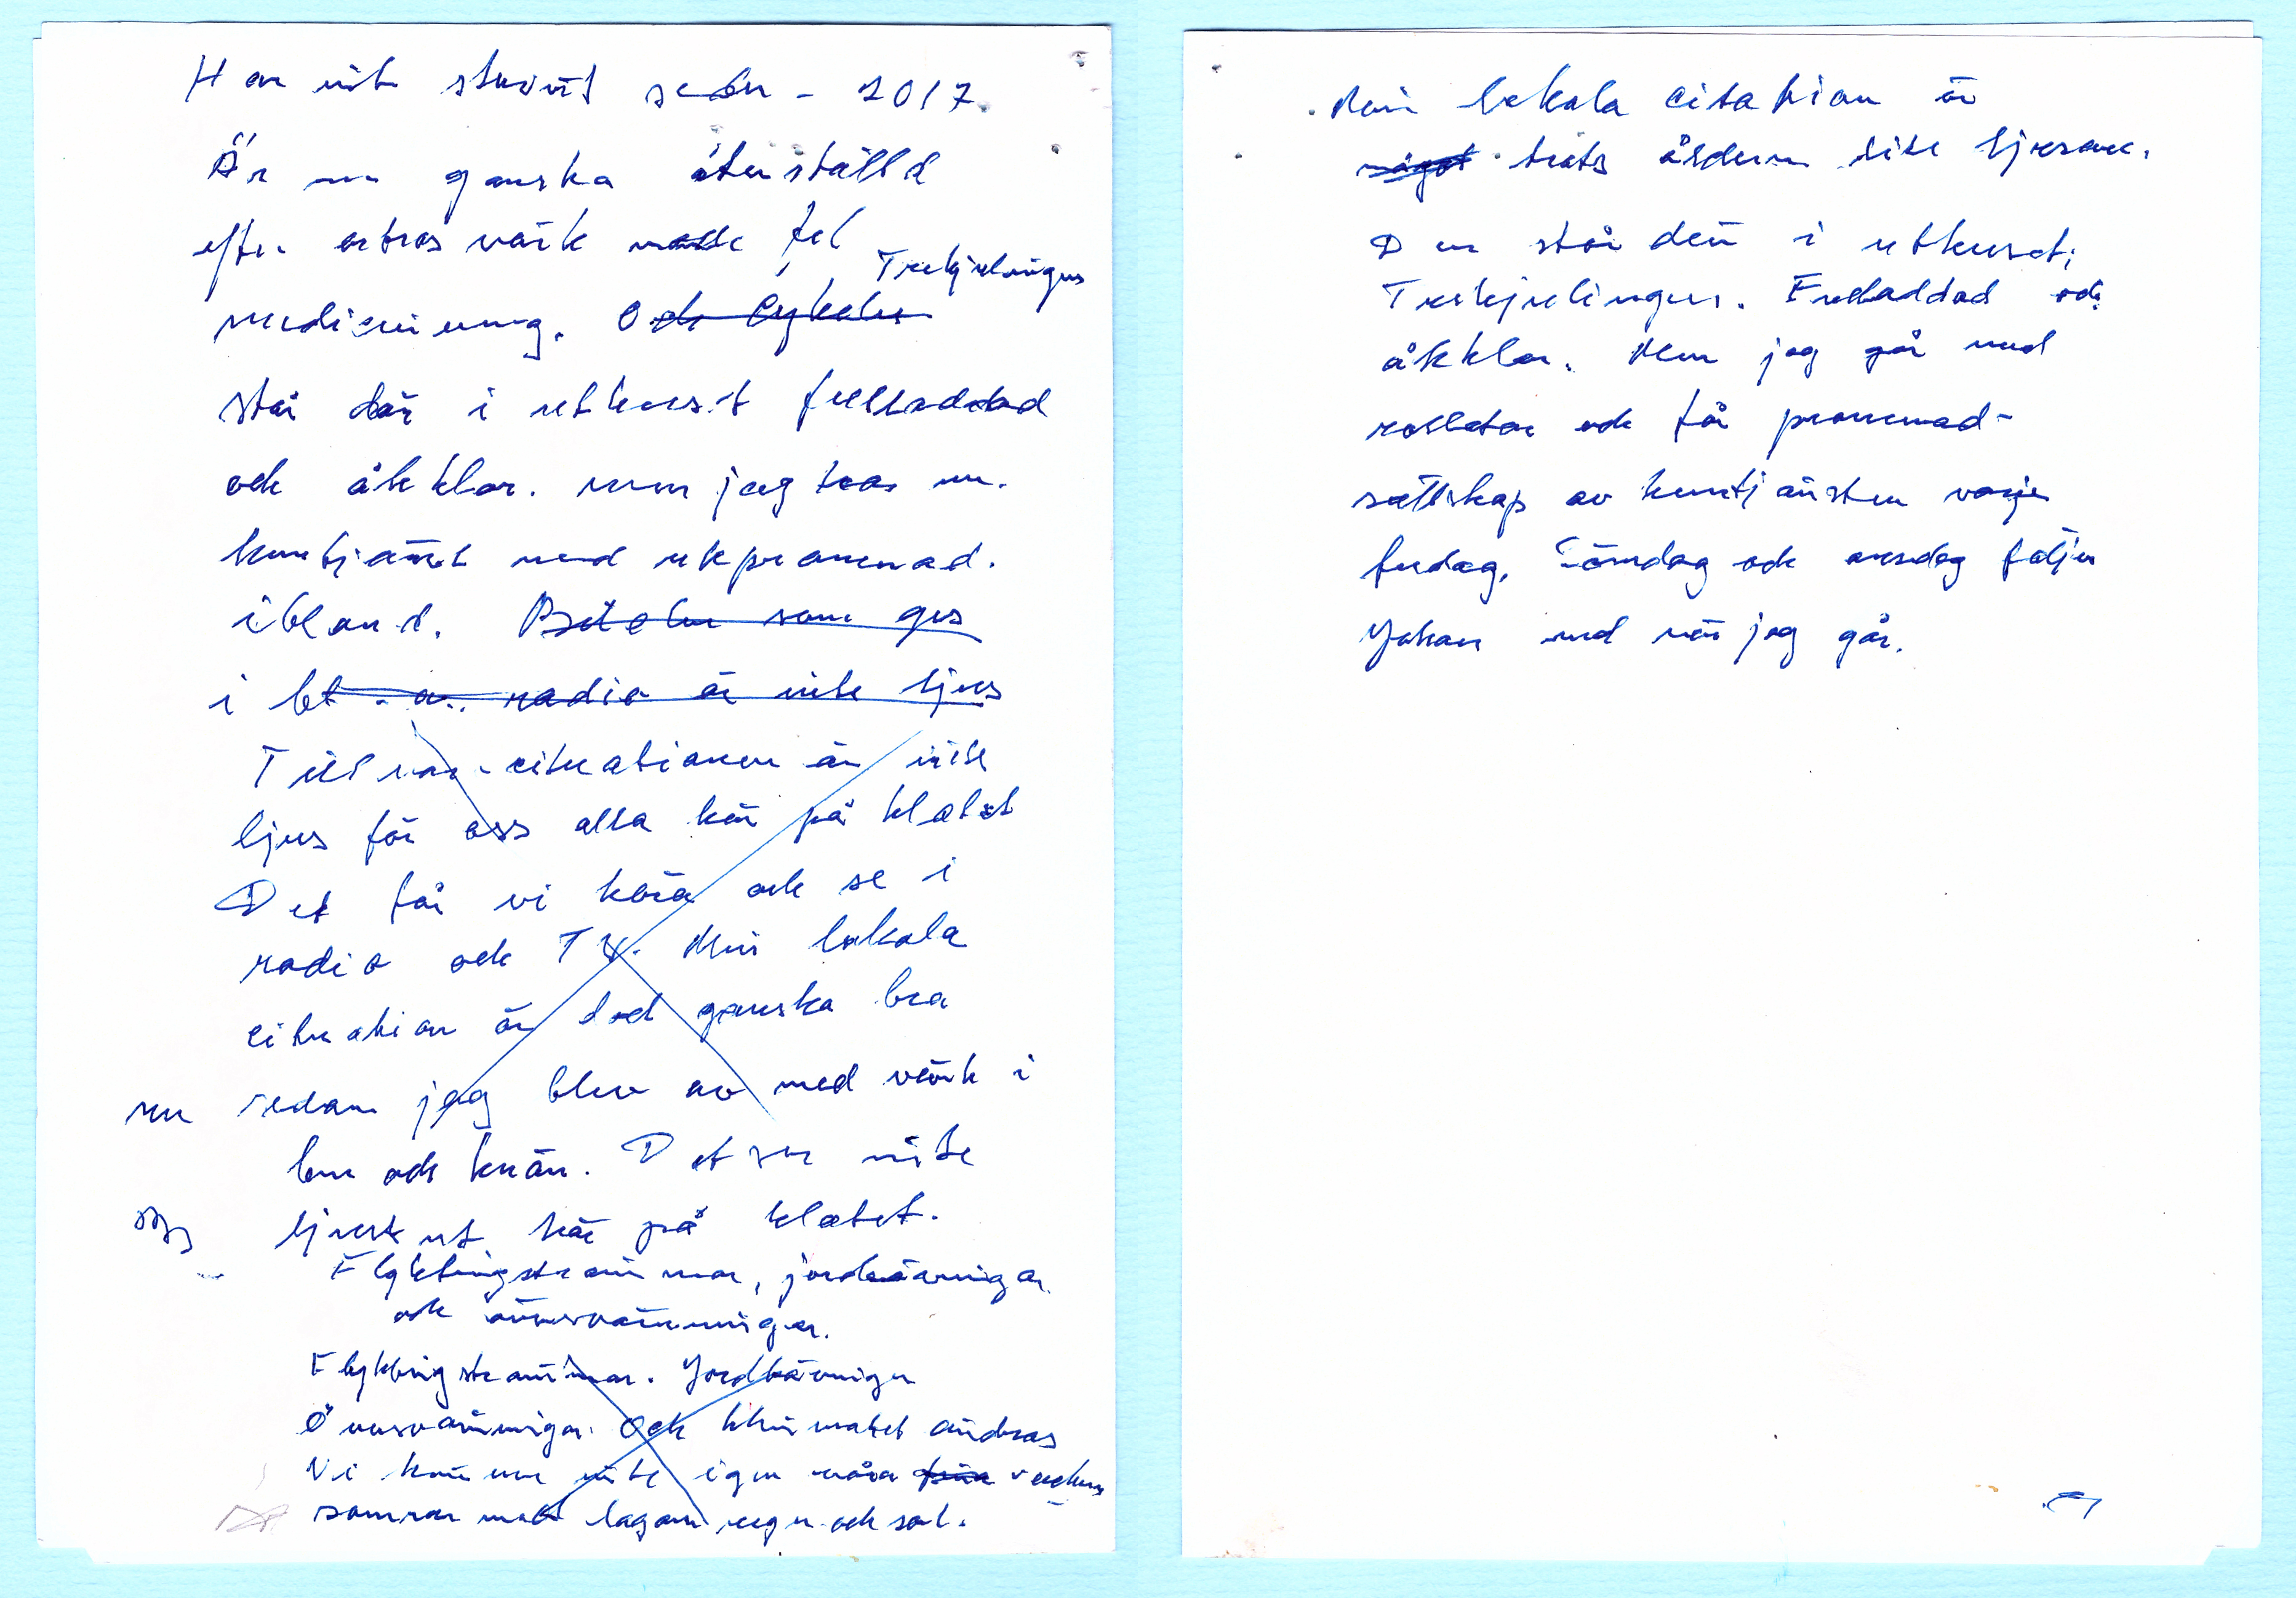 Har inte skrivit sedan - 2017.
Är nu ganska återställd
efter artros värk fel
medicinering. Och Cykeln Trehjulingen
står där i uthuset fulladdad
och åkklar. men jag har nu.
hemtjänst med utepromenad.
ibland. som ges
i radio är inte ljus
Tillvaro-cituationen är inte
ljus för oss alla här på klotet
Det får vi höra och se i
radio och TV. Min lokala
cituation är dock ganska bra
nu sedan jag blev av med värk i
ben och knän. Det ser inte
ljust ut här på klotet.
Flyktingströmmar, jordbävningar
och översvämningar.
Flyktingströmmar. Jordbävningar
Översvämningar. Och klimatet ändras
Vi känner inte igen våra
somrar med lagom regn och sol.
Min lokala citation är
något trots åldern lite ljusare.
Den står där i uthuset;
Trehjulingen. Fulladdad och
åkklar. Men jag går med
rollator och får promenad-
sällskap av hemtjänsten varje
fredag. Söndag och onsdag följer
Johan med när jag går.